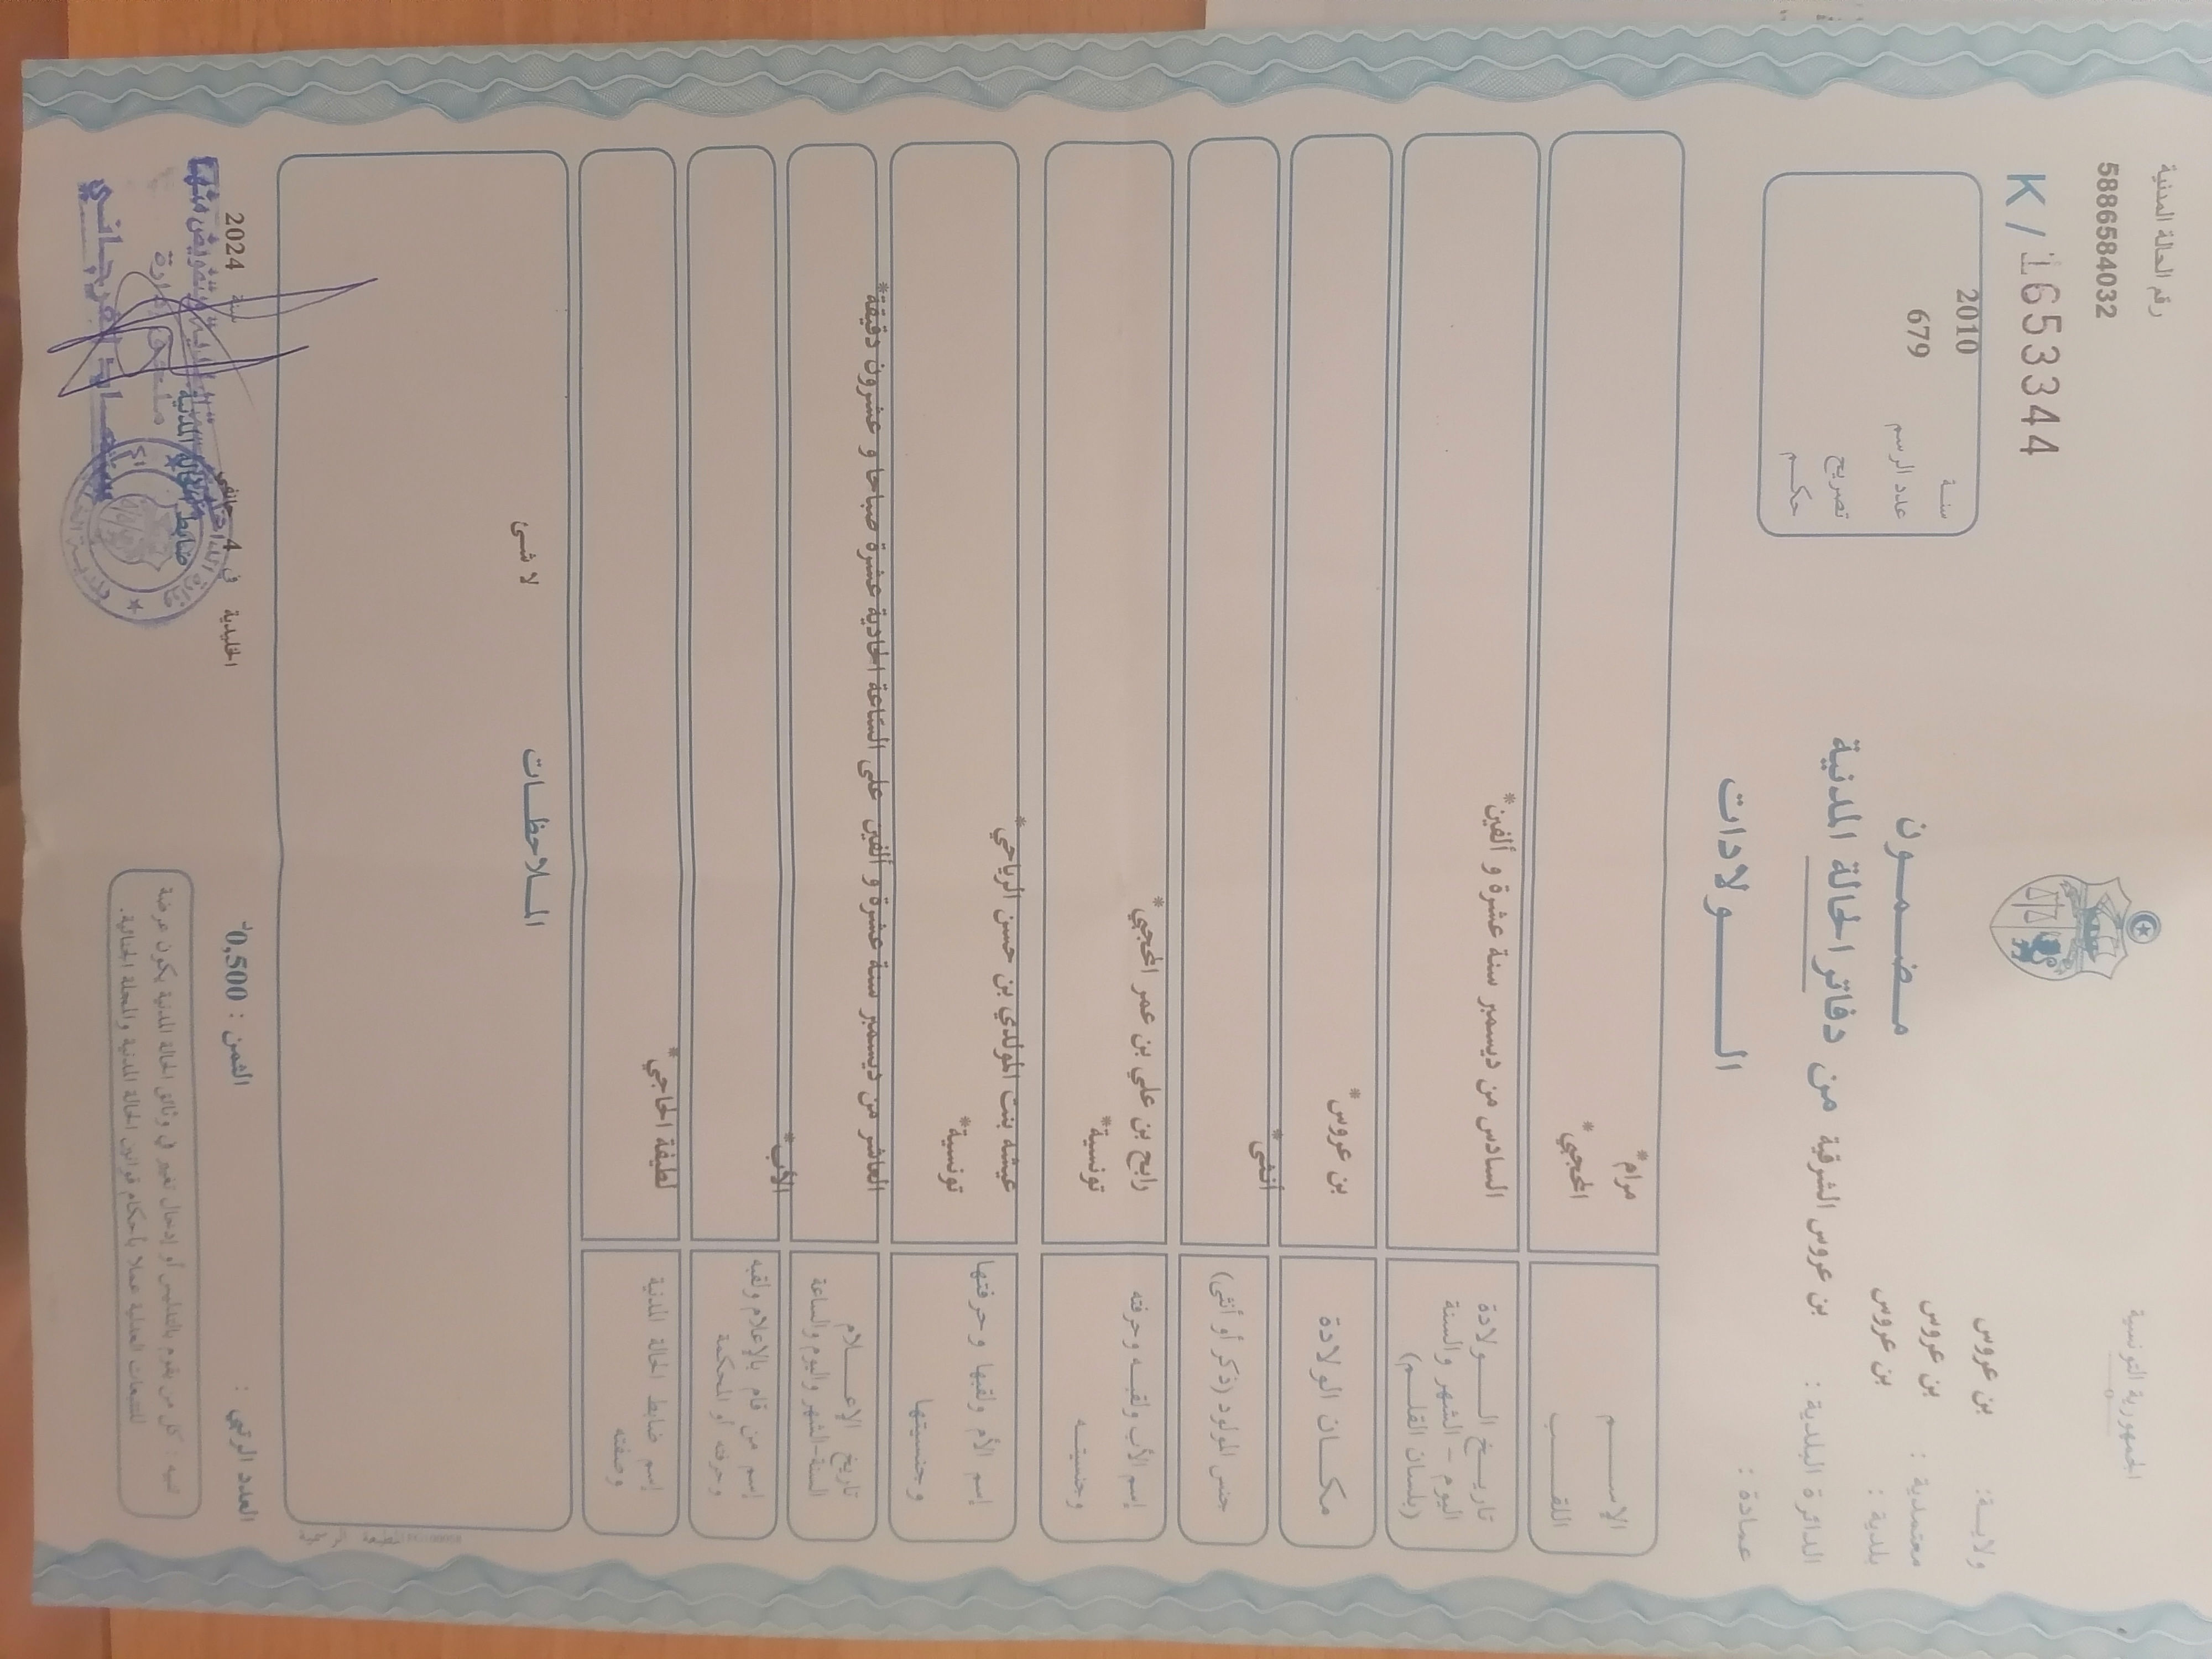 الجمهورية التونسية
ولاية: بن عروس
معتمدية : بن عروس
بلدية : بن عروس
الدائرة البلدية : بن عروس الشرقية
عمادة :
مضمون
من دفاتر الحالة المدنية
الولادات
رقم الحالة المدنية
5886584032
K/1653344
سنة 2010
عدد الرسم 679
تصريح
حكم
الاسم مرام*
اللقب المحجبي*
تاريخ الولادة
اليوم - الشهر والسنة
(بلسان القلم)
السادس من ديسمبر سنة عشرة و ألفين*
مكان الولادة بن عروس*
جنس المولود (ذكر أو أنثى) أنثى*
إسم الأب ولقبه وحرفته
وجنسيته
رابح بن علي بن عمر المحجبي*
تونسية*
إسم الأم ولقبها وحرفتها
وجنسيتها
عيشه بنت المولدي بن حسن الرياحي*
تونسية*
تاريخ الإعلام
السنة-الشهر واليوم والساعة
العاشر من ديسمبر سنة عشرة و ألفين على الساعة الحادية عشرة صباحا و عشرون دقيقة*
إسم من قام بالإعلام ولقبه
وحرفته أو المحكمة
الأب*
إسم ضابط الحالة المدنية
وصفته
لطيفة الحاجي*
الملاحظات
لا شئ
المطبعة الرسمية
العدد الرتبي :
الثمن : 0,500د
الخليدية في 4 جانفي سنة 2024
ضابط الحالة المدنية
تنبيه : كل من يقوم بالتدليس أو إدخال تغيير في وثائق الحالة المدنية يكون عرضة
للتتبعات العدلية عملا بأحكام قوانين الحالة المدنية والمجلة الجنائية.